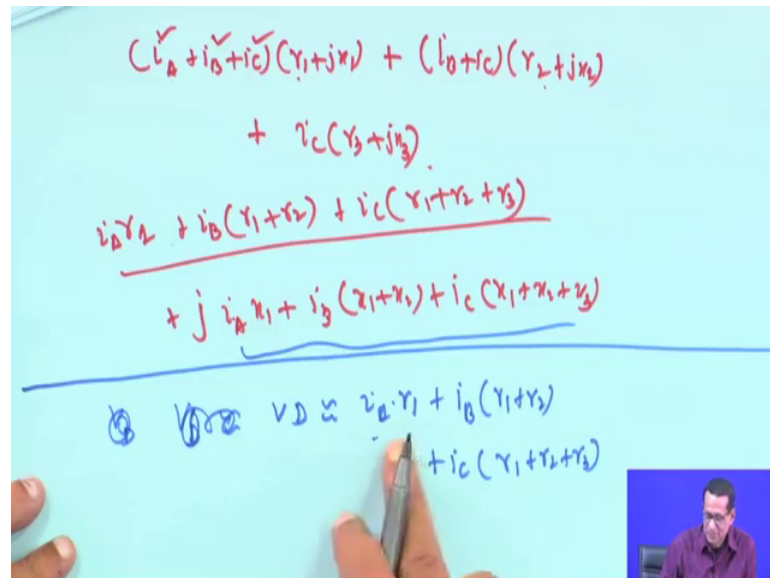 (i_A + i_B + i_C)(r_1+jx_1) + (i_B+i_C)(r_2+jx_2)
+ i_C(r_3+jx_3).
i_A r_1 + i_B(r_1+r_2) + i_C(r_1+r_2+r_3)
+ j i_A x_1 + i_B(x_1+x_2) + i_C(x_1+x_2+x_3)
VD ≈ i_A.r_1 + i_B(r_1+r_2)
+ i_C(r_1+r_2+r_3)